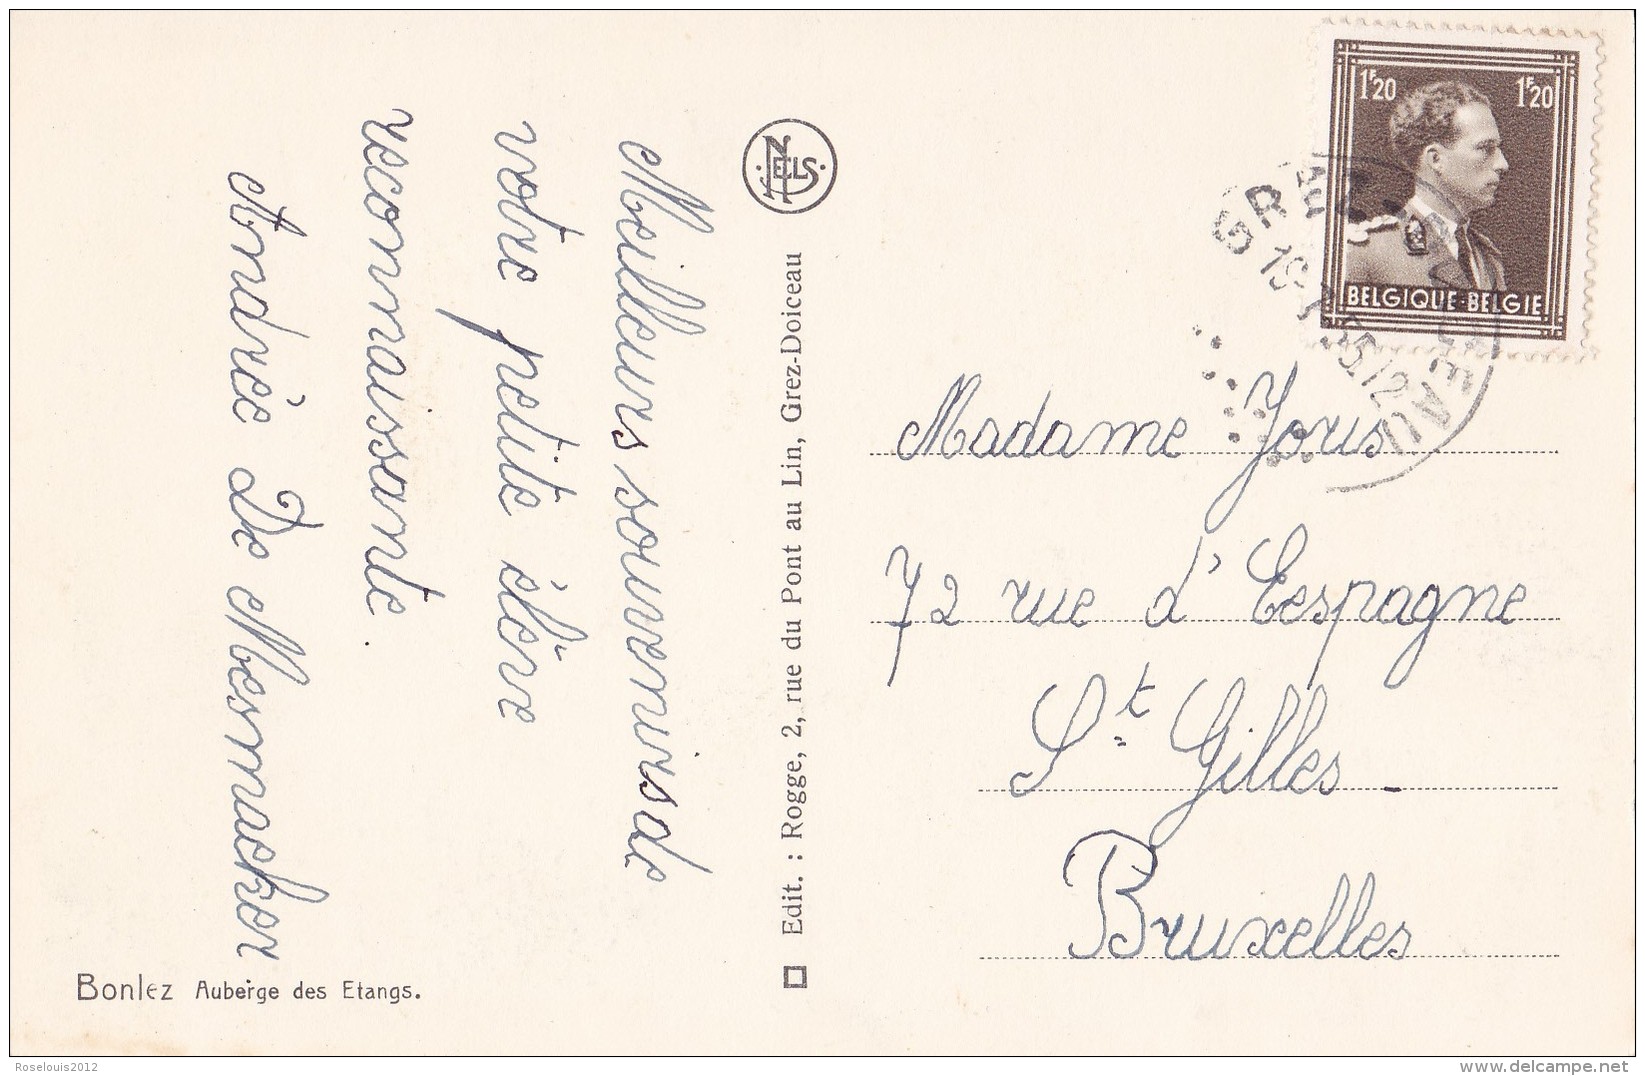 Meilleurs souvenirs de
votre petite élève
reconnaissante.
Andrée De Mesmacker
Bonlez Auberge des Etangs.
NELS
Edit. : Rogge, 2, rue du Pont au Lin, Grez-Doiceau
1F20 1F20
BELGIQUE-BELGIE
GREZ-DOICEAU
Madame Joris
72 rue d'Espagne
St Gilles -
Bruxelles
Roselouis2012
www.delcampe.net